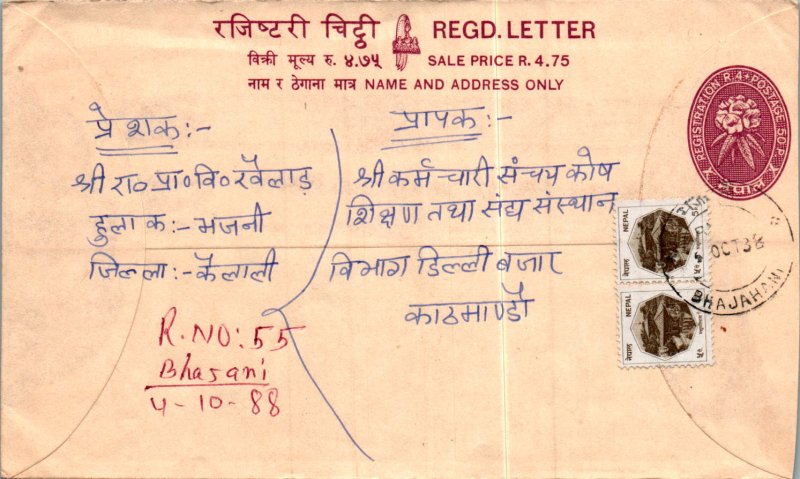 रजिष्टरी चिट्ठी REGD. LETTER
विक्री मूल्य रु. ४.७५ SALE PRICE R. 4.75
नाम र ठेगाना मात्र NAME AND ADDRESS ONLY
REGISTRATION R.4 POSTAGE 50P.
नेपाल
प्रेशक:-
श्री रा० प्रा० वि० खैलाड़
हुलाक:- भजनी
जिल्ला:- कैलाली
R. NO: 55
Bhajani
4-10-88
प्रापक:-
श्री कर्मचारी संचय कोष
शिक्षण तथा संघ संस्थान
विभाग डिल्ली बजार
काठमाण्डौ
NEPAL
नेपाल
NEPAL
नेपाल
OCT 38
BHAJAHANI